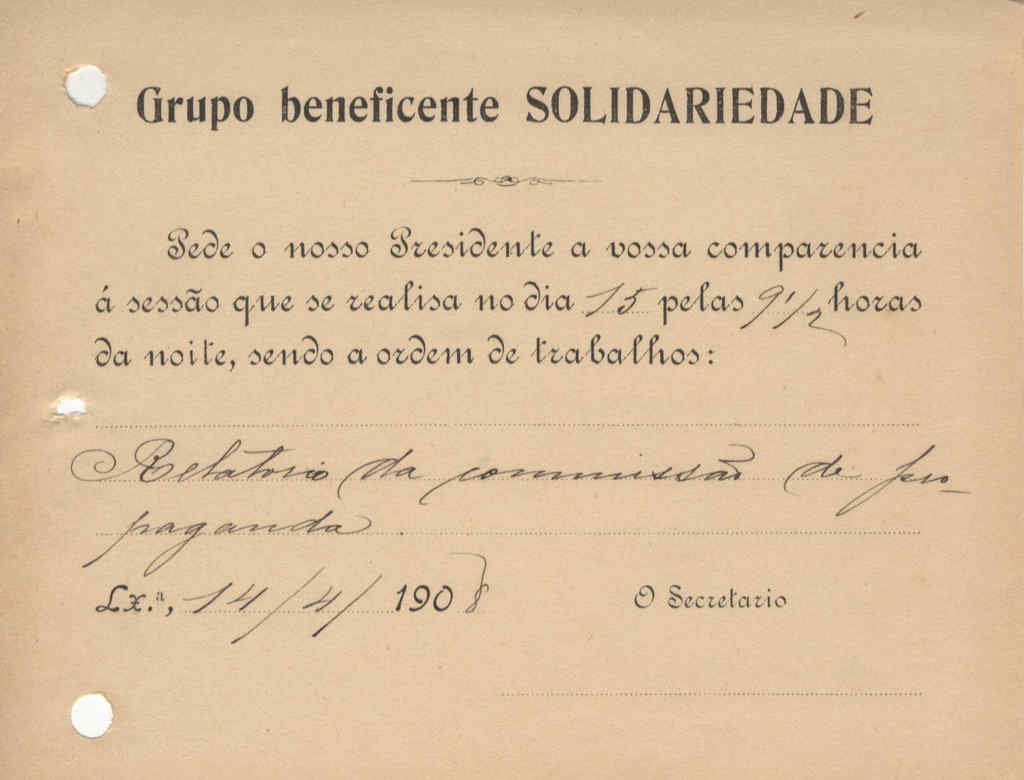 Grupo beneficente SOLIDARIEDADE
Pede o nosso Presidente a vossa comparencia
á sessão que se realisa no dia 15 pelas 9 1/2 horas
da noite, sendo a ordem de trabalhos:
Relatorio da commissão de pro-
paganda.
Lx.ª, 14/4/1908 O Secretario